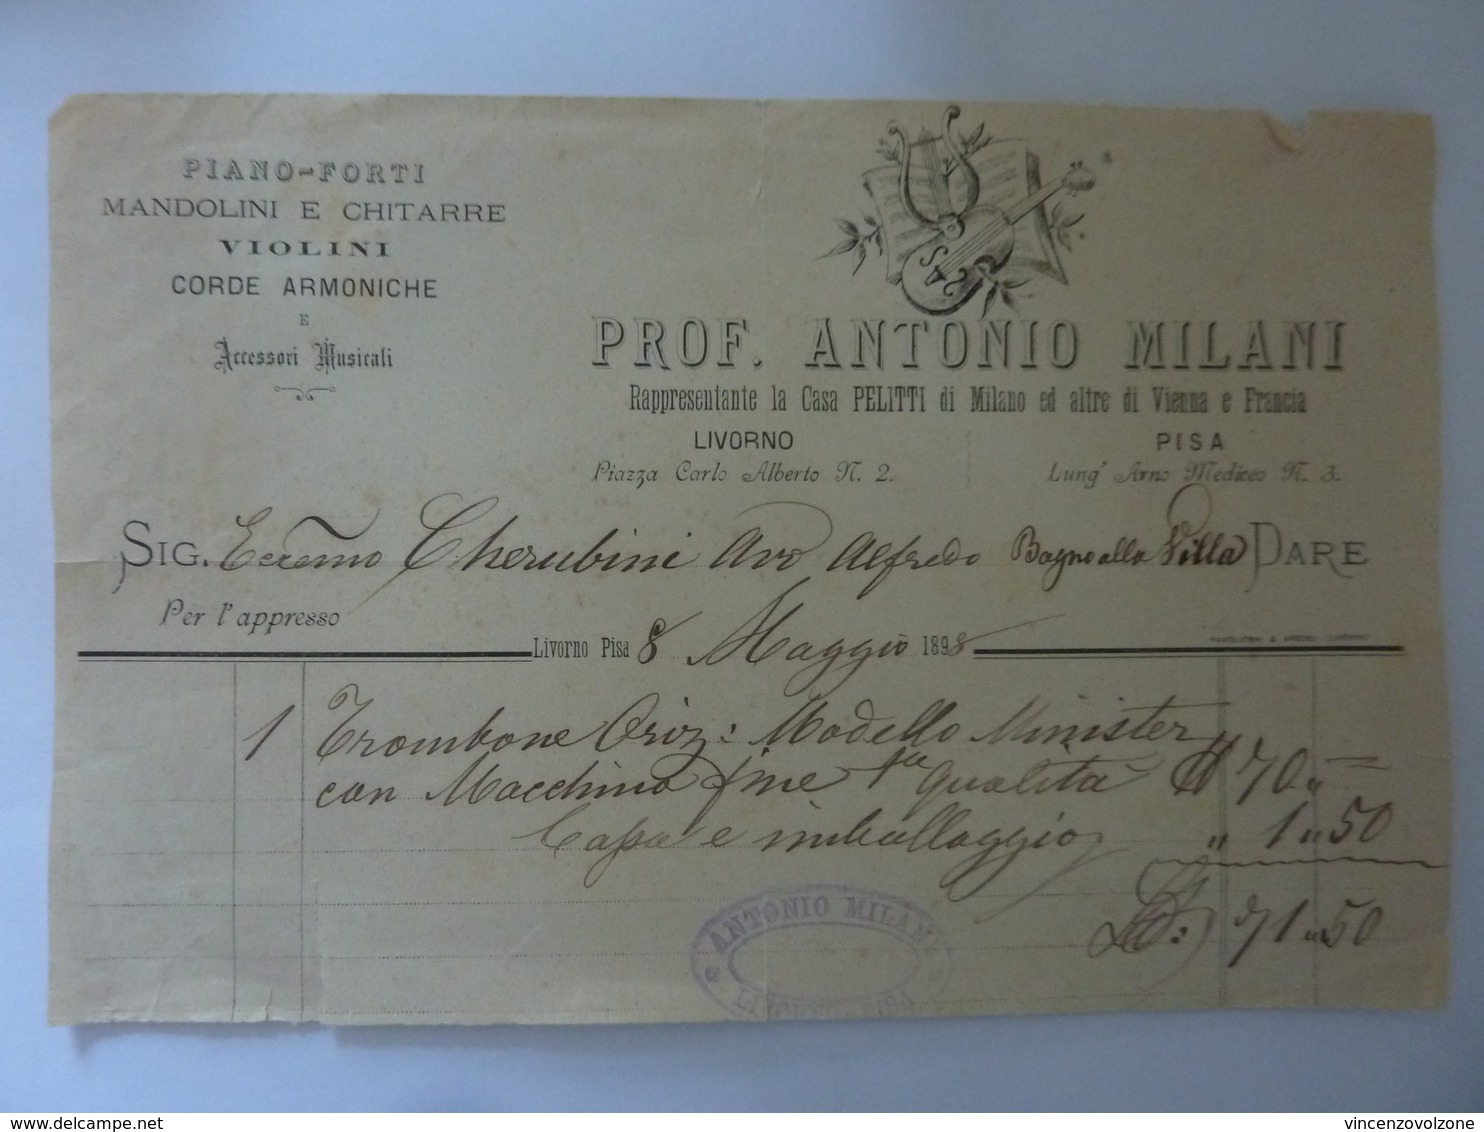 PIANO-FORTI
MANDOLINI E CHITARRE
VIOLINI
CORDE ARMONICHE
E
Accessori Musicali
PROF. ANTONIO MILANI
Rappresentante la Casa PELITTI di Milano ed altre di Vienna e Francia
LIVORNO
Piazza Carlo Alberto N. 2.
PISA
Lung' Arno Mediceo N. 3.
SIG. Eccmo Cherubini Avo Alfredo Bagno alla Villa DARE
Per l'appresso
Livorno Pisa 8 Maggio 1898
1 Trombone Oriz: Modello Minister
con Macchina fine 1a qualità 70 "
Cassa e imballaggio " 1 " 50
71 " 50
ANTONIO MILANI
LIVORNO PISA
delcampe.net
vincenzovolzone